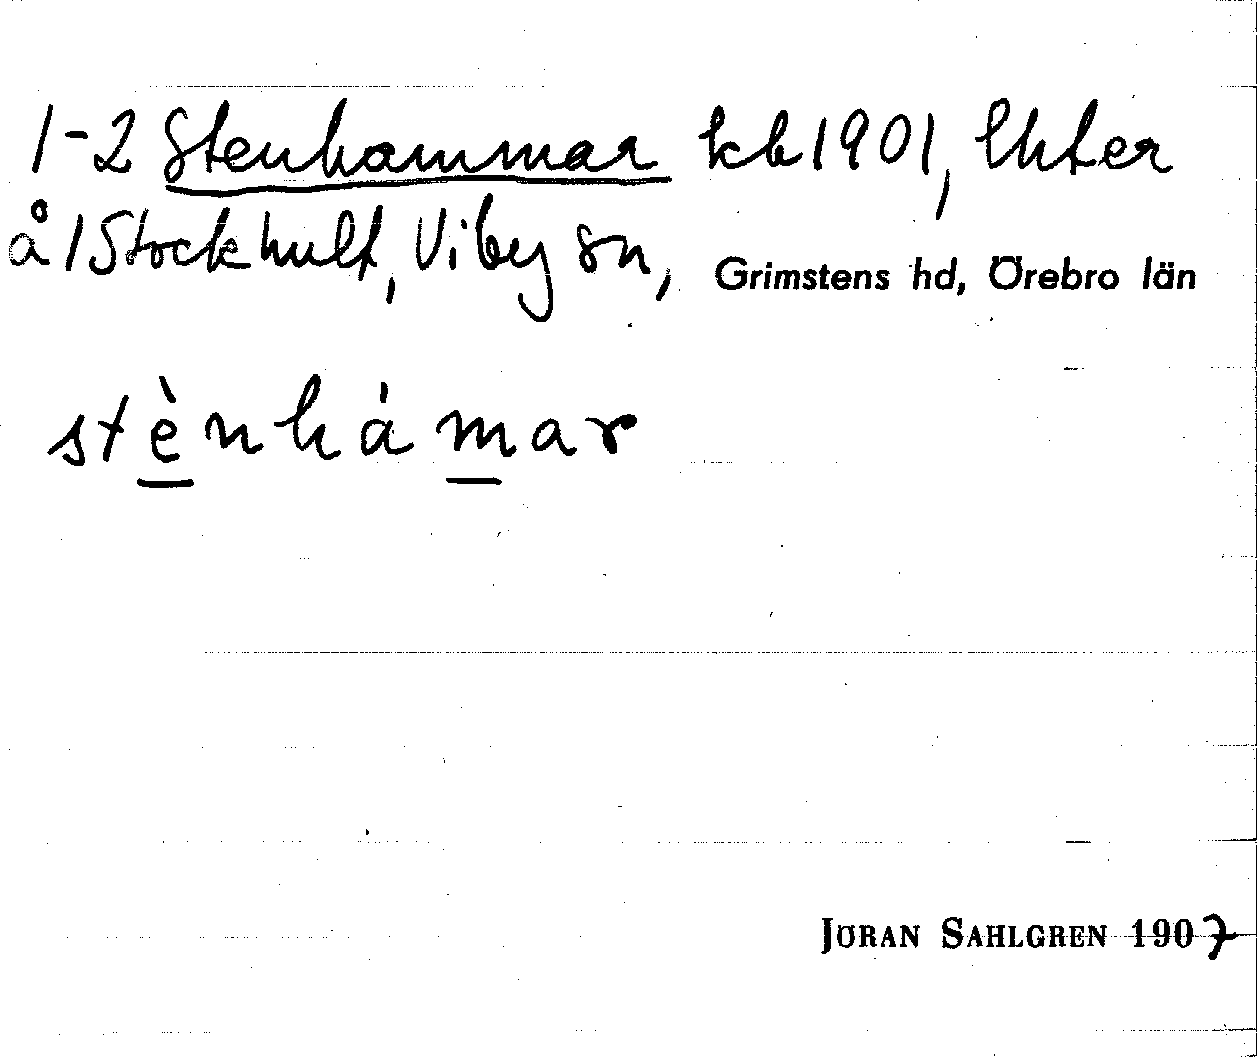 1-2 Stenhammar kb 1901, lhter
å 1 Stockhult, Viby sn, Grimstens hd, Örebro län
stènhàmar
JÖRAN SAHLGREN 1907